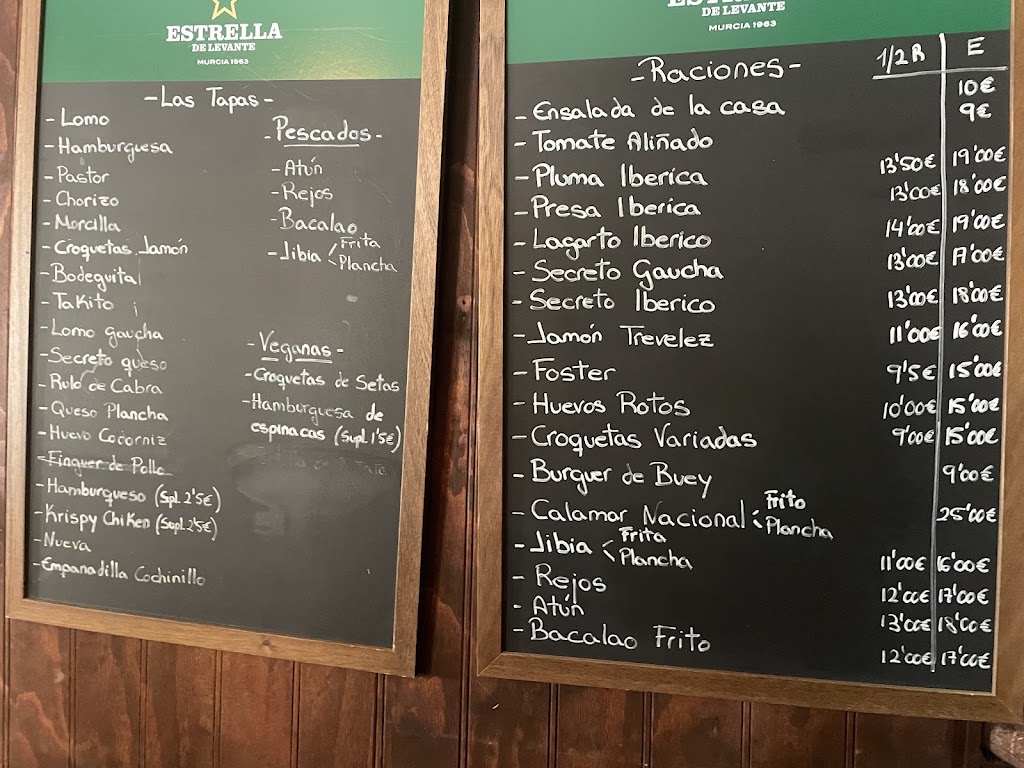 ESTRELLA
DE LEVANTE
MURCIA 1963
-Las Tapas-
- Lomo
- Hamburguesa
- Pastor
- Chorizo
- Morcilla
- Croquetas Jamón
- Bodeguita
- Takito
- Lomo gaucha
- Secreto queso
- Rulo de Cabra
- Queso Plancha
- Huevo Codorniz
- Finguer de Pollo
- Hamburgueso (Spl. 2'5€)
- Krispy Chiken (Supl. 2'5€)
- Nueva
- Empanadilla Cochinillo
- Pescados -
- Atún
- Rejos
- Bacalao
- Jibia < Frita
Plancha
- Veganas -
- Croquetas de Setas
- Hamburguesa de
espinacas (Supl. 1'5€)
ESTRELLA
DE LEVANTE
MURCIA 1963
- Raciones - 1/2 R E
- Ensalada de la casa 10€
- Tomate Aliñado 9€
- Pluma Iberica 13'50€ 19'00€
- Presa Iberica 13'00€ 18'00€
- Lagarto Iberico 14'00€ 19'00€
- Secreto Gaucha 13'00€ 17'00€
- Secreto Iberico 13'00€ 18'00€
- Jamón Trevelez 11'00€ 16'00€
- Foster 9'5€ 15'00€
- Huevos Rotos 10'00€ 15'00€
- Croquetas Variadas 9'00€ 15'00€
- Burguer de Buey 9'00€
- Calamar Nacional < Frito
Plancha 25'00€
- Jibia < Frita
Plancha 11'00€ 16'00€
- Rejos 12'00€ 17'00€
- Atún 13'00€ 18'00€
- Bacalao Frito 12'00€ 17'00€